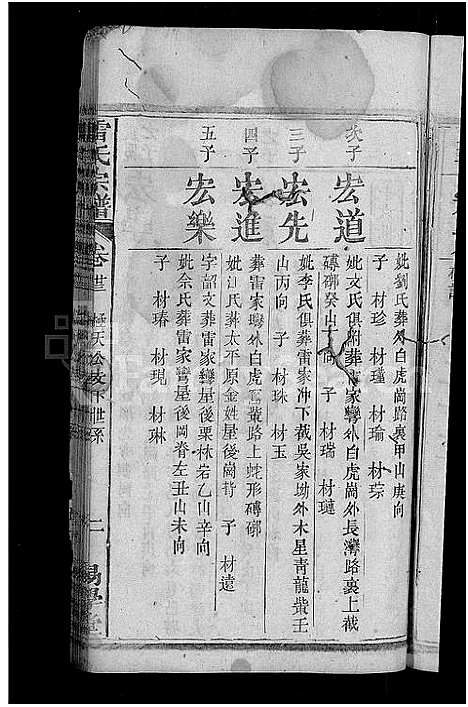 妣劉氏葬外白虎崗路裏甲山庚向
子 材珍 材瑾 材瑜 材琮
次子 宏道
妣文氏俱附葬雷家彎外白虎崗外長灣路裏上截
磚槨癸山丁向 子 材瑞 材璉
三子 宏先
妣李氏俱葬雷家冲下截吳家坳外木星青龍觜壬
山丙向 子 材珠 材玉
四子 宏進
葬雷家彎外白虎路上蛇形磚槨
妣江氏葬太平原金姓屋後崗背 子 材遠
五子 宏樂
字韶文葬雷家彎屋後栗林岩乙山辛向
妣余氏葬雷家彎屋後岡脊左丑山未向
子 材瑃 材現 材琳
雷氏宗譜 卷廿三 下世系 二 易學堂